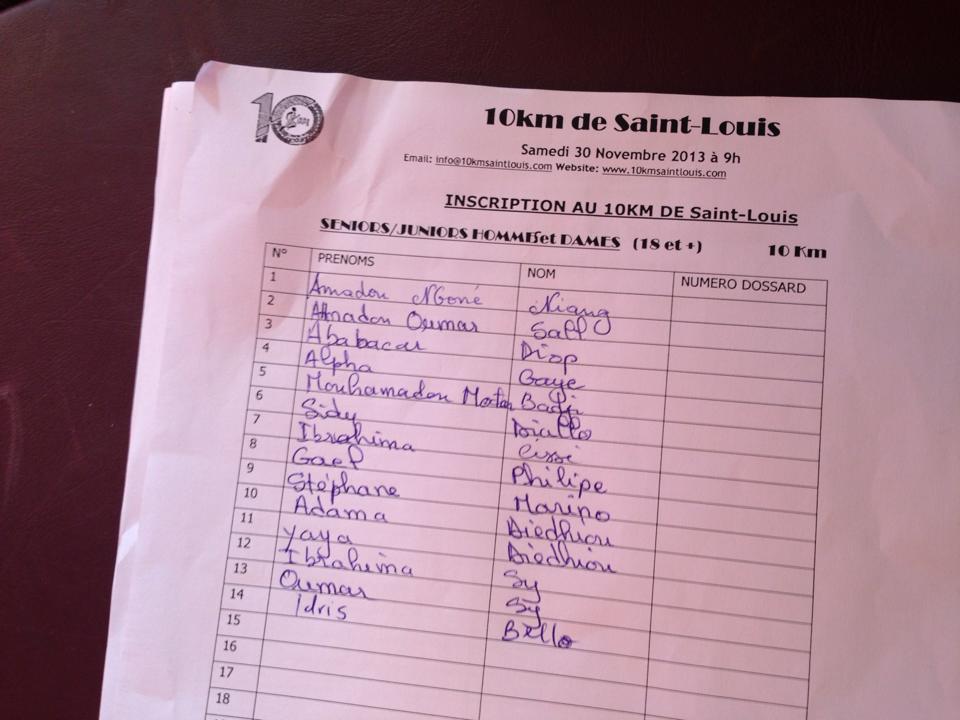 10
10km de Saint-Louis
Samedi 30 Novembre 2013 à 9h
Email: info@10kmsaintlouis.com Website: www.10kmsaintlouis.com
INSCRIPTION AU 10KM DE Saint-Louis
SENIORS/JUNIORS HOMMES et DAMES (18 et +) 10 Km
N° PRENOMS NOM NUMERO DOSSARD
1 Amadou Mboné Niang
2 Amadou Oumar Sall
3 Ababacar Diop
4 Alpha Gaye
5 Mouhamadou Moctar Badji
6 Sidy Diallo
7 Ibrahima Cissé
8 Gael Philipe
9 Stéphane Marino
10 Adama Diedhiou
11 Yaya Diedhiou
12 Ibrahima Sy
13 Oumar Sy
14 Idris Bello
15
16
17
18